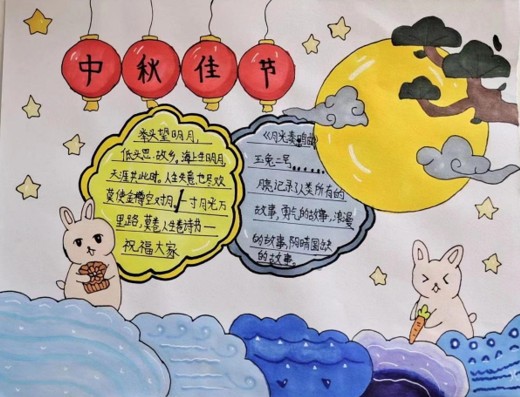 中秋佳节
举头望明月,
低头思故乡,海上生明月
天涯共此时,人生得意须尽欢
莫使金樽空对月,一寸月光万
里路,莫负人生青诗书——
祝福大家
《月光奏鸣曲》
玉兔二号
月亮记录人类所有的
故事,勇气的故事,浪漫
的故事,阴晴圆缺
的故事。